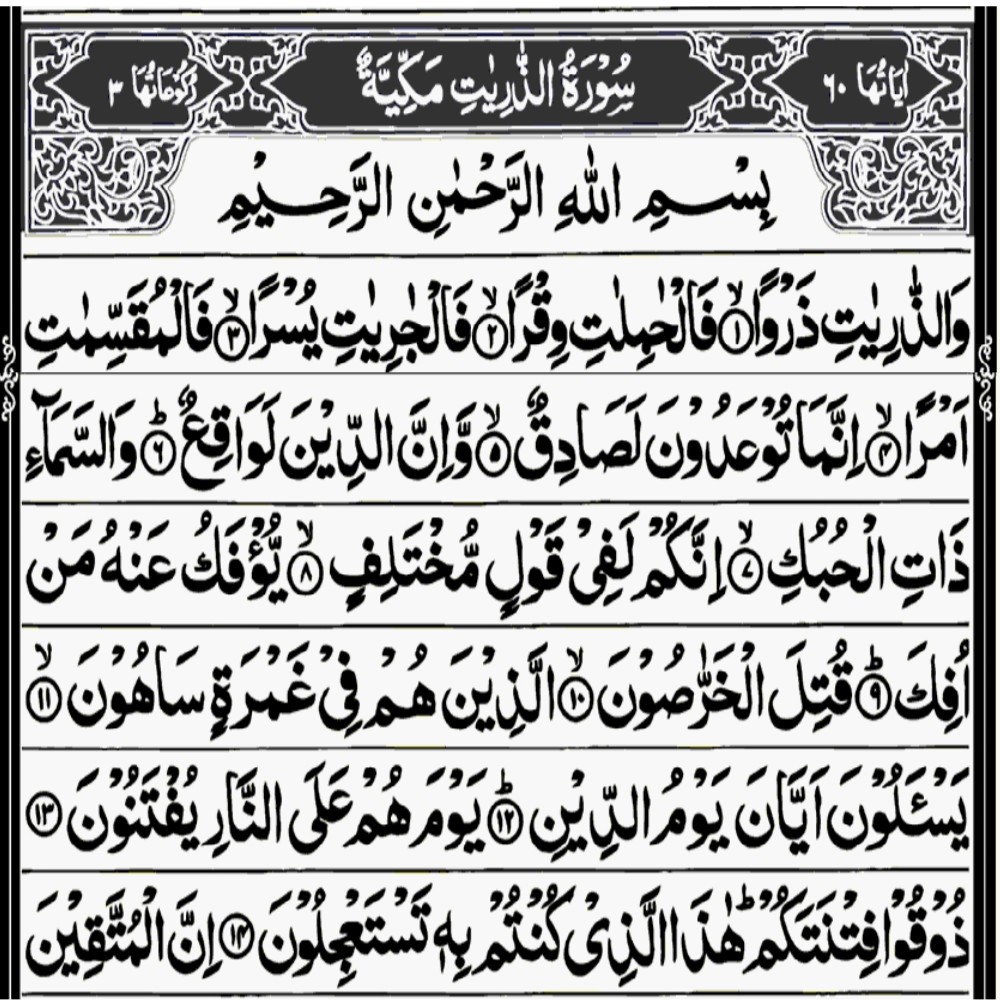 اٰيَاتُهَا ٦٠ سُوْرَةُ الذّٰرِيٰتِ مَكِّيَّةٌ رُكُوْعَاتُهَا ٣
بِسْمِ اللهِ الرَّحْمٰنِ الرَّحِيْمِ
وَالذّٰرِيٰتِ ذَرْوًا ۙ﴿١﴾ فَالْحٰمِلٰتِ وِقْرًا ۙ﴿٢﴾ فَالْجٰرِيٰتِ يُسْرًا ۙ﴿٣﴾ فَالْمُقَسِّمٰتِ
اَمْرًا ۙ﴿٤﴾ اِنَّمَا تُوْعَدُوْنَ لَصَادِقٌ ۙ﴿٥﴾ وَّاِنَّ الدِّيْنَ لَوَاقِعٌ ؕ﴿٦﴾ وَالسَّمَآءِ
ذَاتِ الْحُبُكِ ۙ﴿٧﴾ اِنَّكُمْ لَفِيْ قَوْلٍ مُّخْتَلِفٍ ۙ﴿٨﴾ يُّؤْفَكُ عَنْهُ مَنْ
اُفِكَ ؕ﴿٩﴾ قُتِلَ الْخَرّٰصُوْنَ ۙ﴿١٠﴾ الَّذِيْنَ هُمْ فِيْ غَمْرَةٍ سَاهُوْنَ ۙ﴿١١﴾
يَسْـَٔلُوْنَ اَيَّانَ يَوْمُ الدِّيْنِ ؕ﴿١٢﴾ يَوْمَ هُمْ عَلَى النَّارِ يُفْتَنُوْنَ ﴿١٣﴾
ذُوْقُوْا فِتْنَتَكُمْ ؕ هٰذَا الَّذِيْ كُنْتُمْ بِهٖ تَسْتَعْجِلُوْنَ ﴿١٤﴾ اِنَّ الْمُتَّقِيْنَ